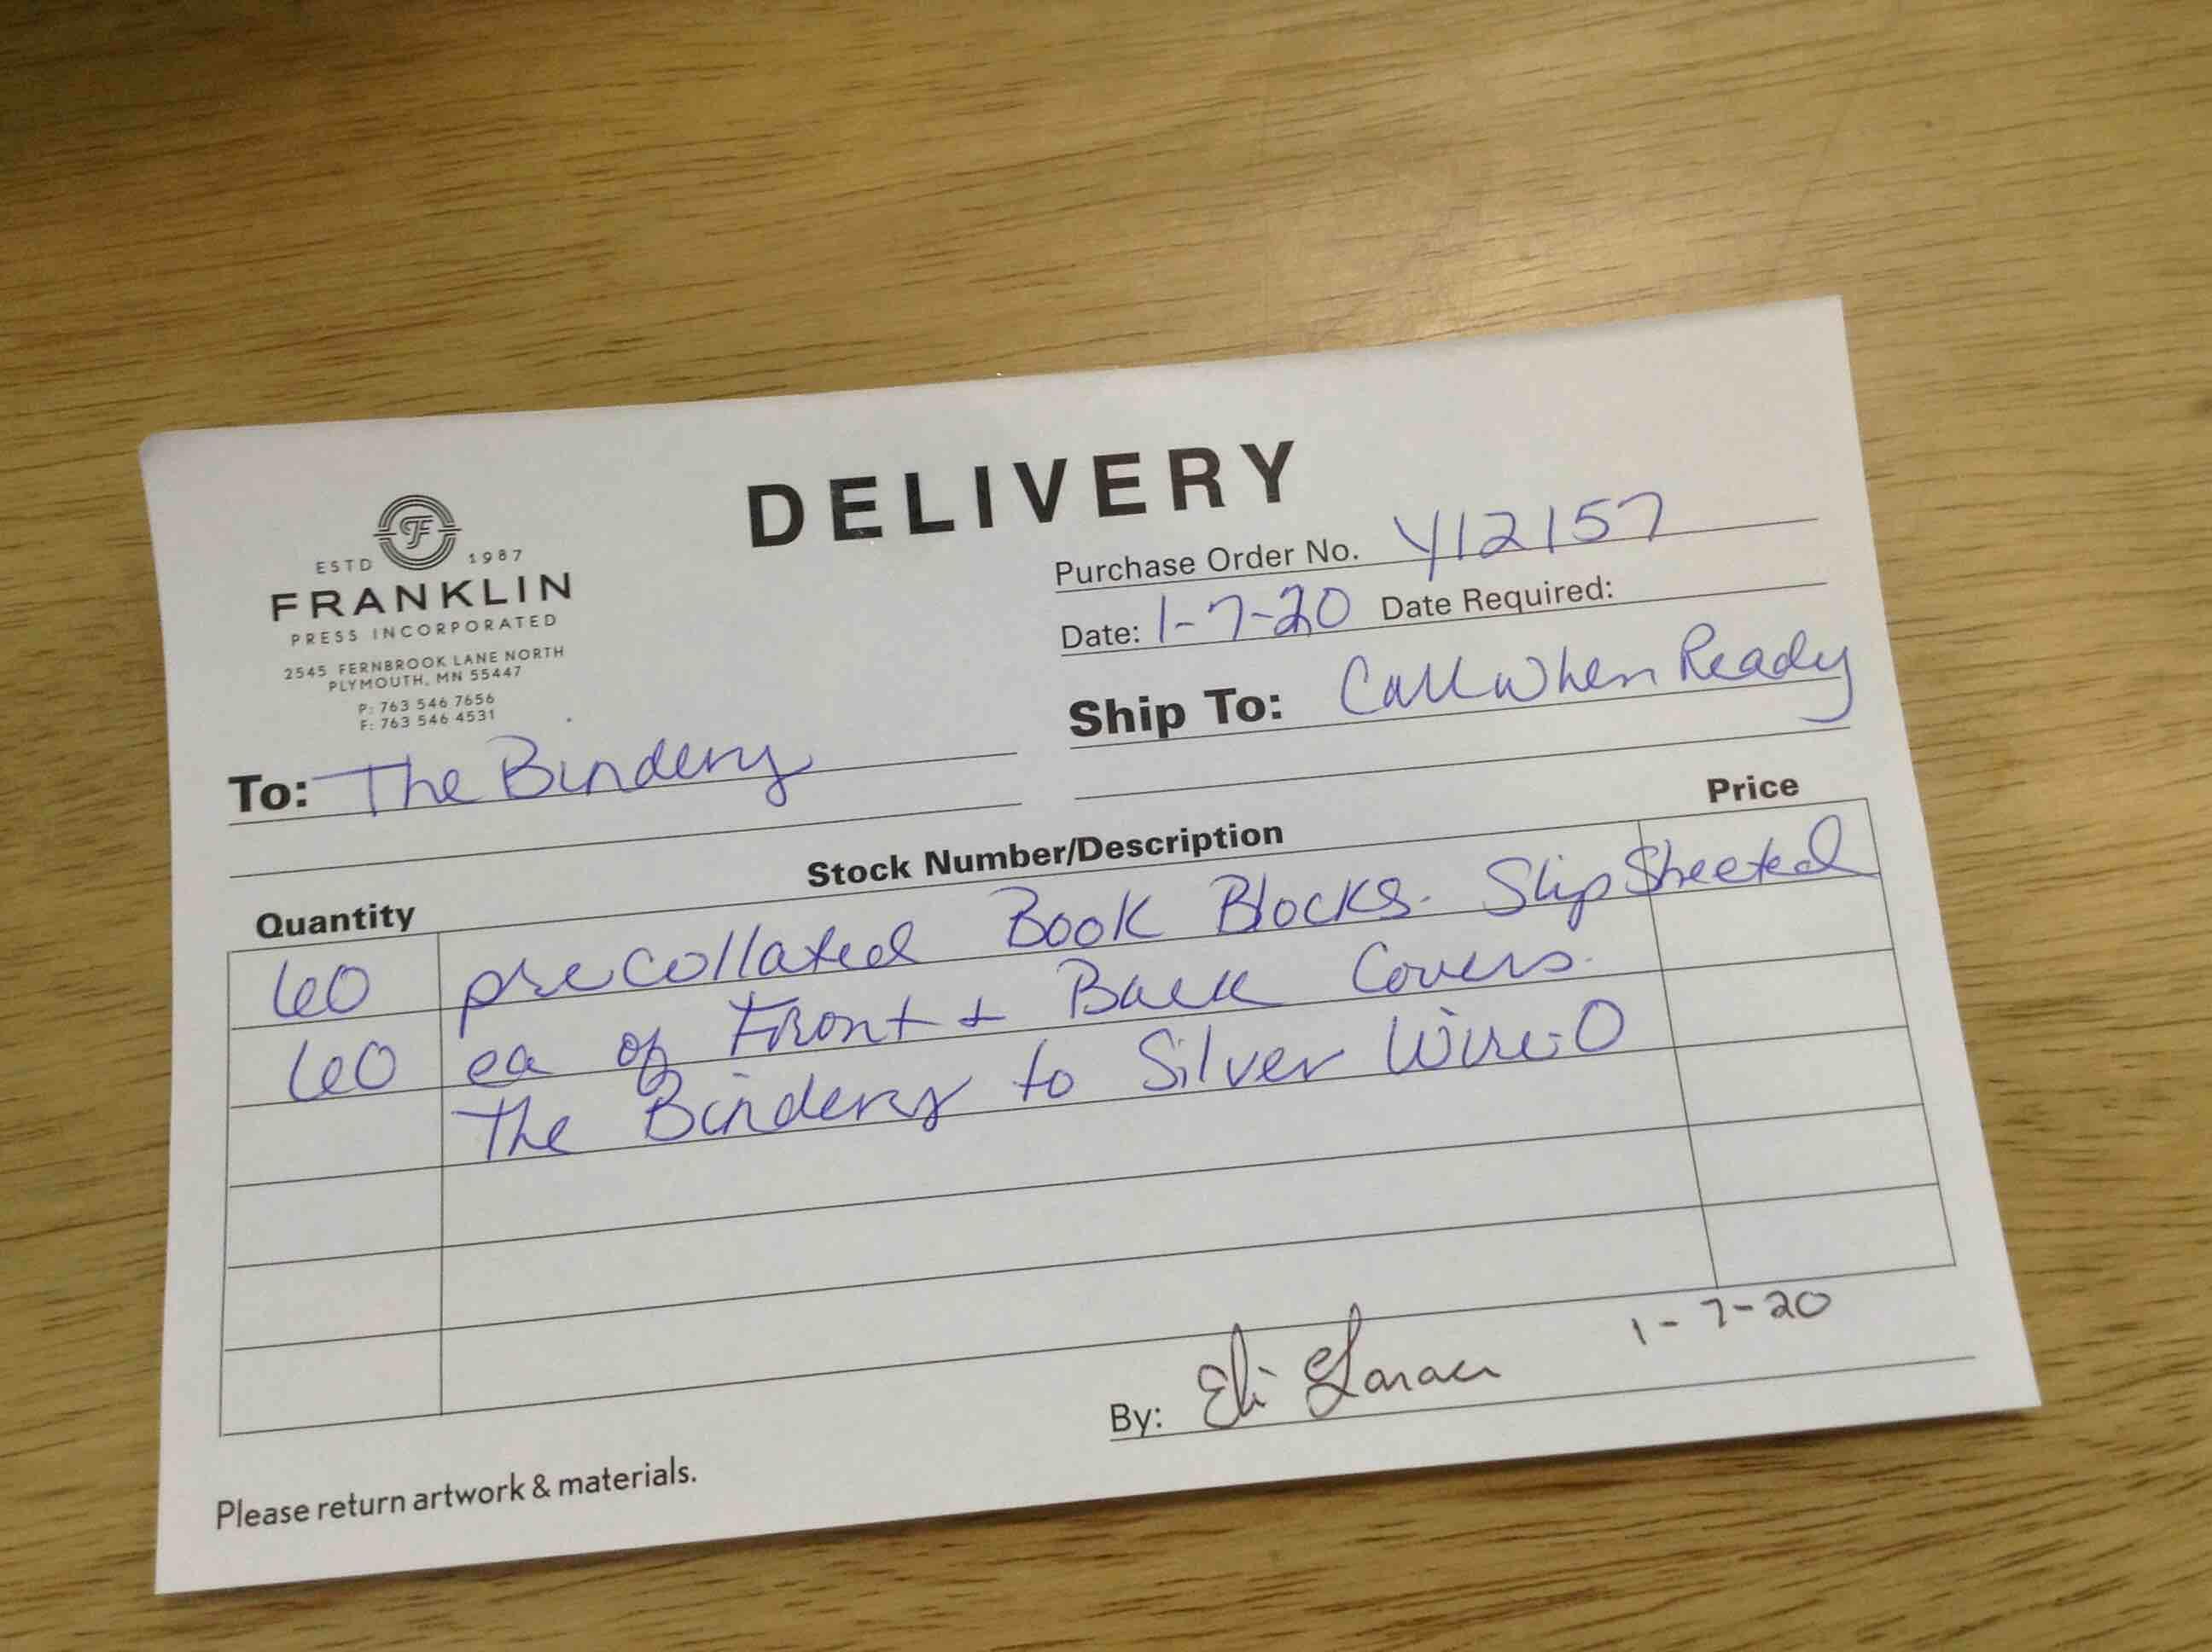 DELIVERY
ESTD 1987
FRANKLIN
PRESS INCORPORATED
2545 FERNBROOK LANE NORTH
PLYMOUTH, MN 55447
P: 763 546 7656
F: 763 546 4531
Purchase Order No. Y12157
Date: 1-7-20 Date Required:
Ship To: Call When Ready
To: The Bindery
Quantity Stock Number/Description Price
60 precollated Book Blocks. Slip Sheeted
60 ea of Front + Back Covers.
The Bindery to Silver Wire-O
By: Eli 1-7-20
Please return artwork & materials.